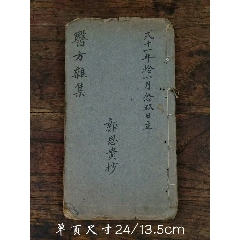 醫方雜集
民十一年拾八月念玖日立
郭恩貴抄
单页尺寸24/13.5cm